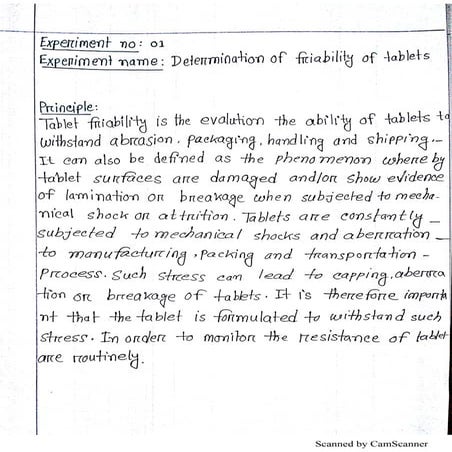 Experiment no: 01
Experiment name: Determination of friability of tablets
Principle:
Tablet friability is the evolution the ability of tablets to
withstand abrasion. packaging, handling and shipping.-
It can also be defined as the phenomenon where by
tablet surfaces are damaged and/or show evidence
of lamination or breakage when subjected to mecha-
nical shock or attrition. Tablets are constantly -
subjected to mechanical shocks and aberration -
to manufacturing, packing and transportation -
Process. Such stress can lead to capping, aberra
tion or breakage of tablets. It is therefore importa
nt that the tablet is formulated to withstand such
stress. In order to monitor the resistance of tablet
are routinely.
Scanned by CamScanner